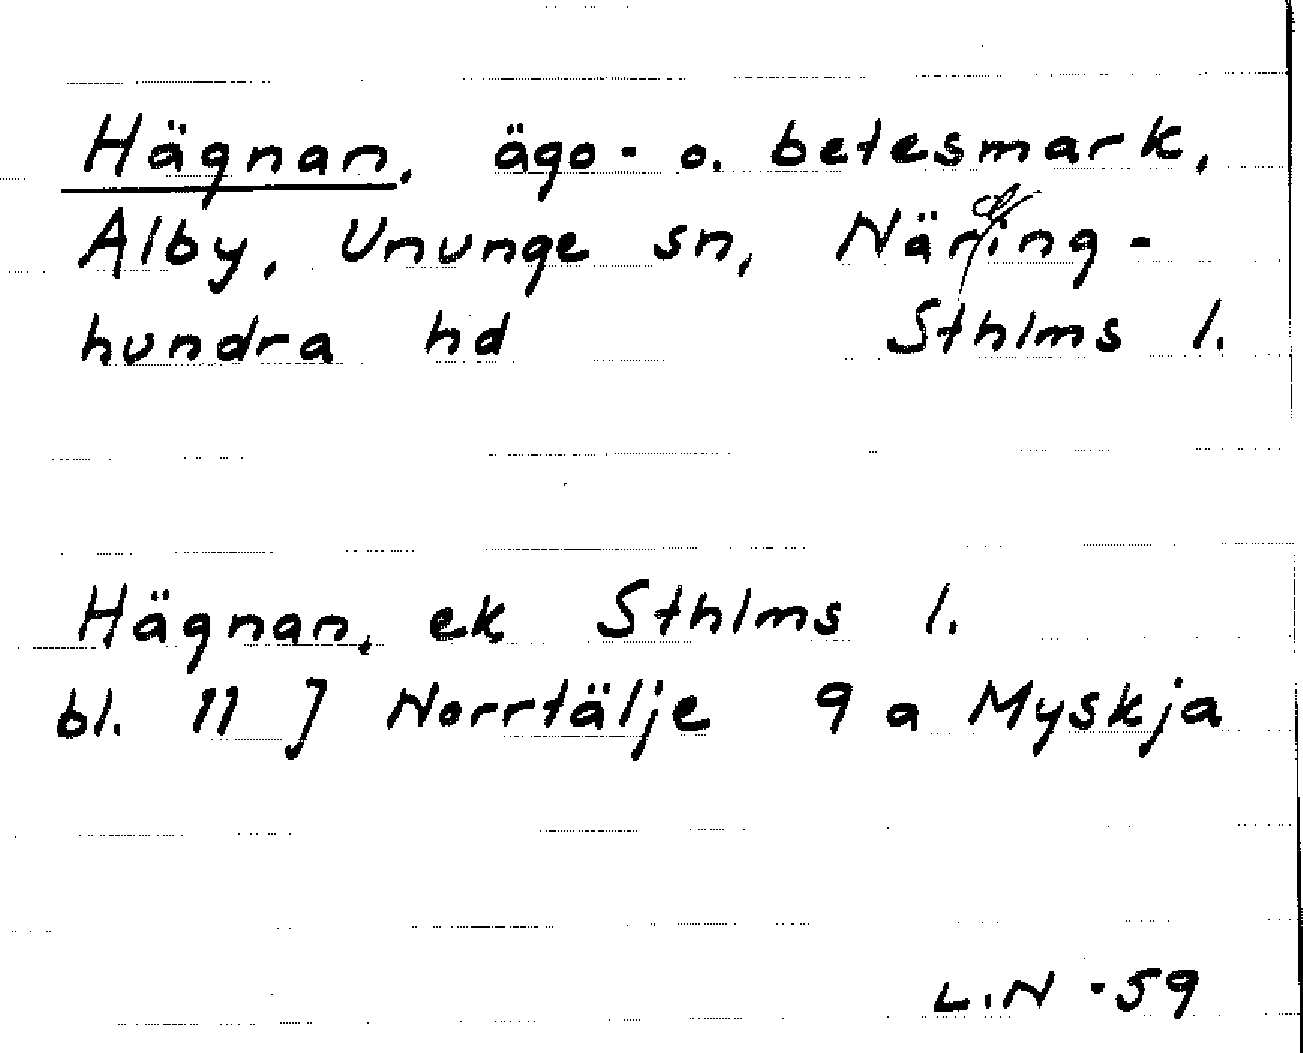 Hägnan, ägo- o. betesmark,
Alby, Ununge sn, Närding-
hundra hd Sthlms l.
Hägnan, ek Sthlms l.
bl. 11 J Norrtälje 9 a Myskja
L.N -59